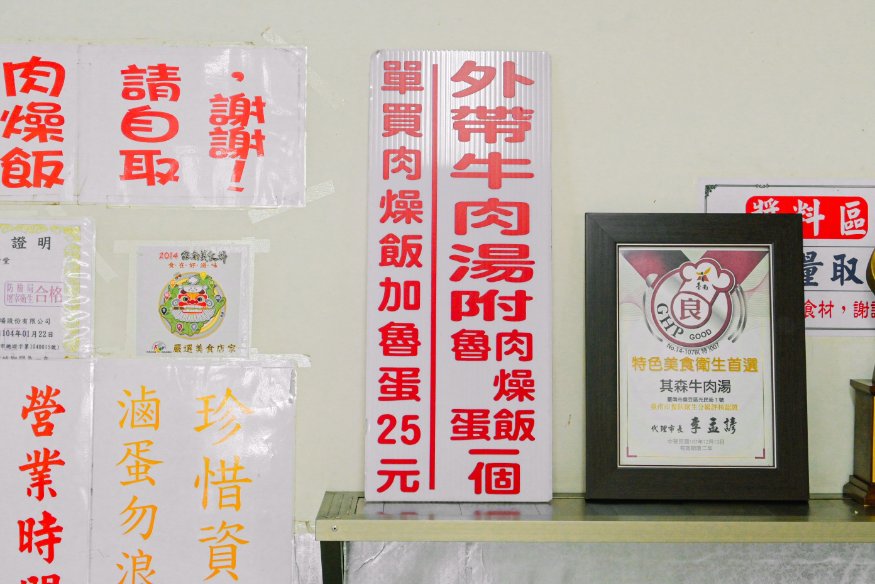 肉燥飯
請自取
，謝謝！
證明
防檢局
合格
104年01月22
2014
食在好滋味
嚴選美食店家
營業時間
滷蛋勿浪
珍惜資
外帶牛肉湯附
肉燥飯一個
魯蛋
單買肉燥飯加魯蛋25元
臺南
良
GHP GOOD
特色美食衛生首選
其森牛肉湯
代理市長 李孟諺
醬料區
量取
食材，謝謝